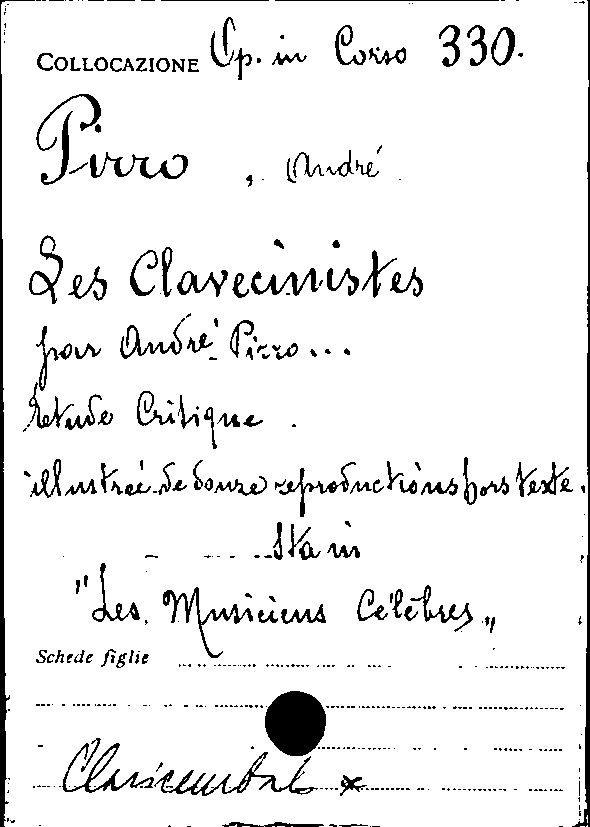 COLLOCAZIONE Op. in Corso 330.
Pirro, André
Les Clavecinistes
par André Pirro...
Etude Critique.
illustrée de douze reproductions hors texte.
Sta in
"Les Musiciens Célèbres„
Schede figlie
Clavicembal x